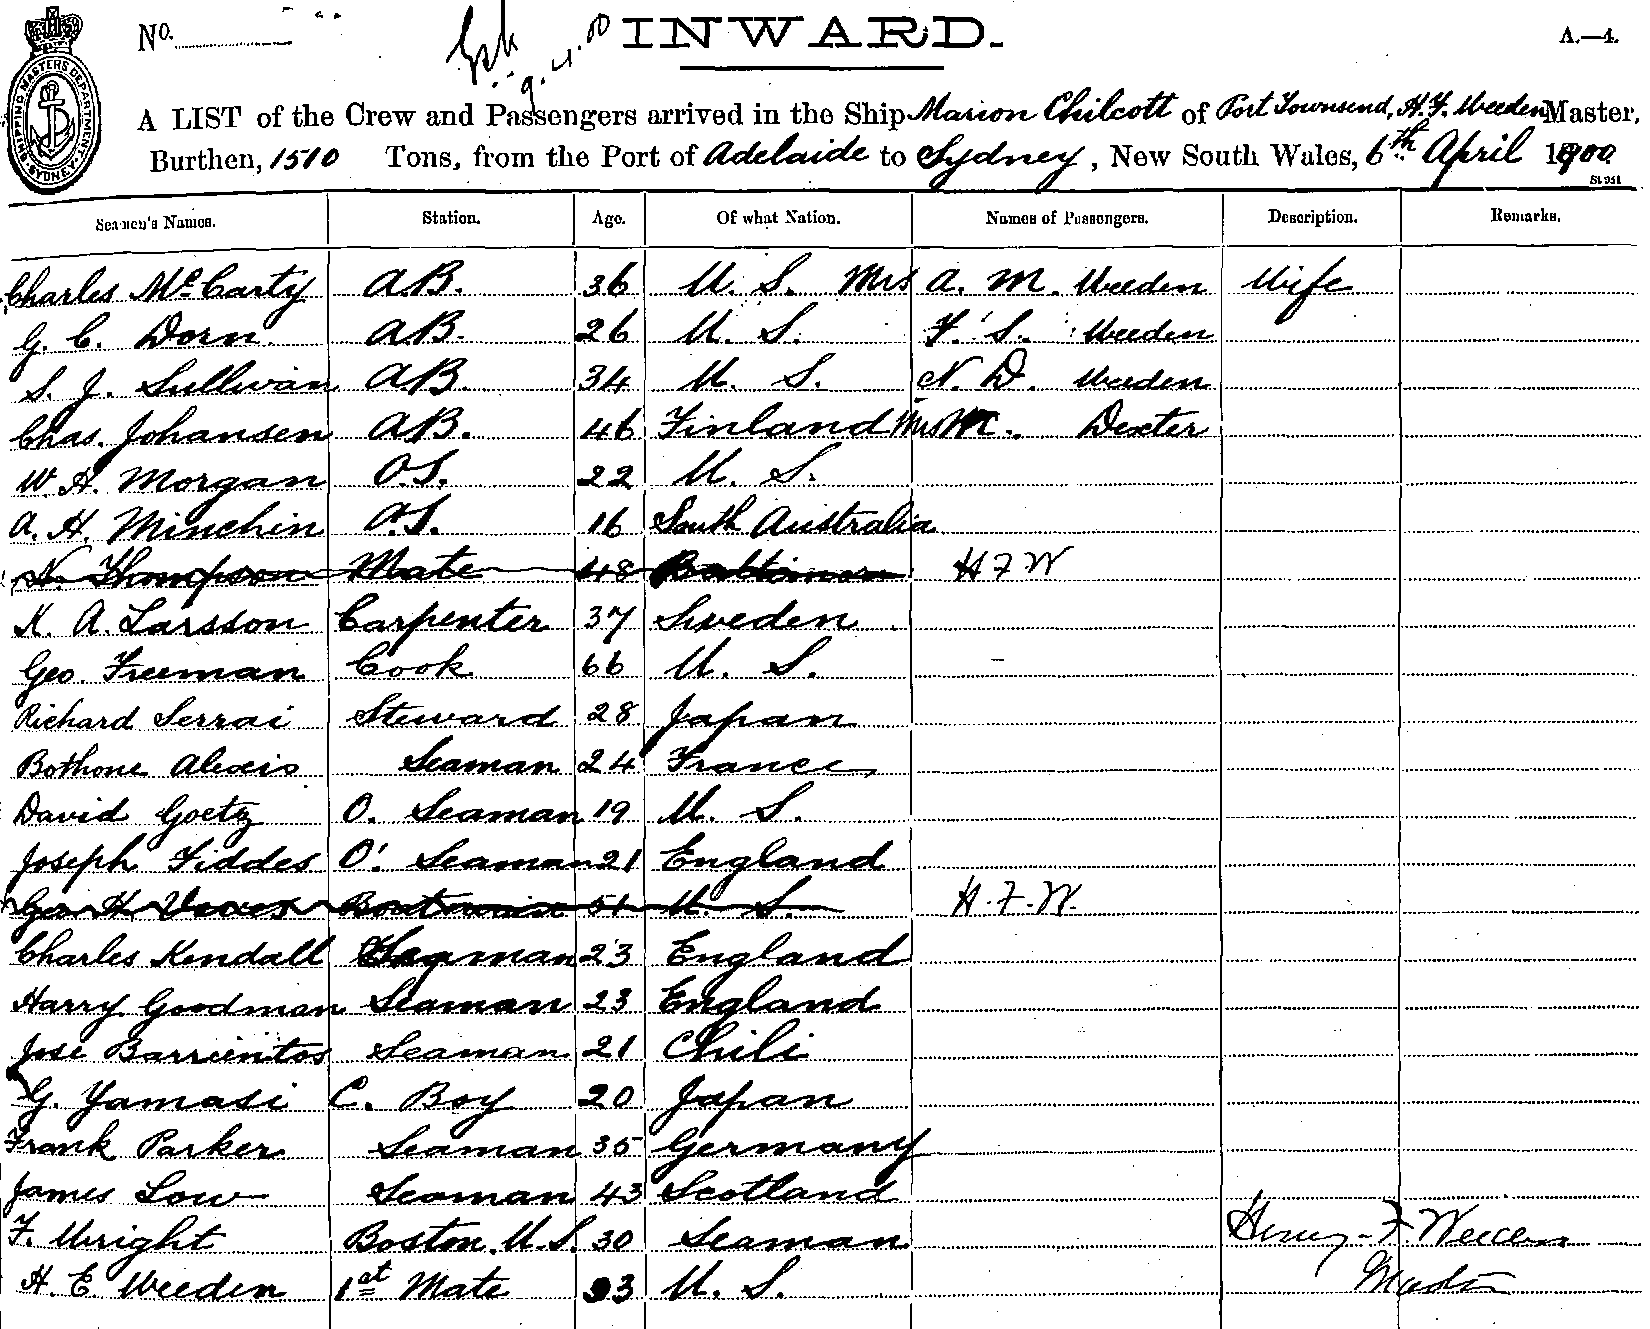 No.
9.4.00
INWARD.
A.—4.
SHIPPING MASTERS DEPARTMENT SYDNEY
A LIST of the Crew and Passengers arrived in the Ship Marion Chilcott of Port Townsend, H. F. Weeden Master,
Burthen, 1510 Tons, from the Port of Adelaide to Sydney, New South Wales, 6th April 1900
Seamen's Names. Station. Age. Of what Nation. Names of Passengers. Description. Remarks.
Charles McCarty A.B. 36 U. S. Mrs A. M. Weeden Wife
G. C. Dorn A.B. 26 U. S. F. S. Weeden
S. J. Sullivan A.B. 34 U. S. N. D. Weeden
Chas. Johansen A.B. 46 Finland Mrs M. Dexter
W. H. Morgan O.S. 22 U. S.
A. H. Minchin O.S. 16 South Australia
N. Thompson Mate 48 H F W
K. A. Larsson Carpenter 37 Sweden
Geo. Freeman Cook 66 U. S.
Richard Serrai Steward 28 Japan
Bothone Alexis Seaman 24 France
David Goetz O. Seaman 19 U. S.
Joseph Fiddes O. Seaman 21 England
Geo H Boatswain 51 U. S. H. F. W.
Charles Kendall Seaman 23 England
Harry Goodman Seaman 23 England
José Barrientos Seaman 21 Chili
G. Yamasi C. Boy 20 Japan
Frank Parker Seaman 35 Germany
James Low Seaman 43 Scotland
F. Wright Boston. U.S. 30 Seaman Henry F Weeden
H. E Weeden 1st Mate 23 U. S. Master